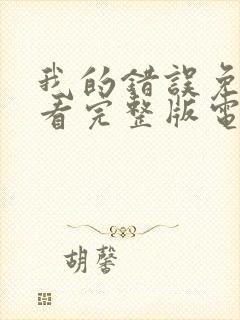 我的錯誤免
看完整版電
胡馨